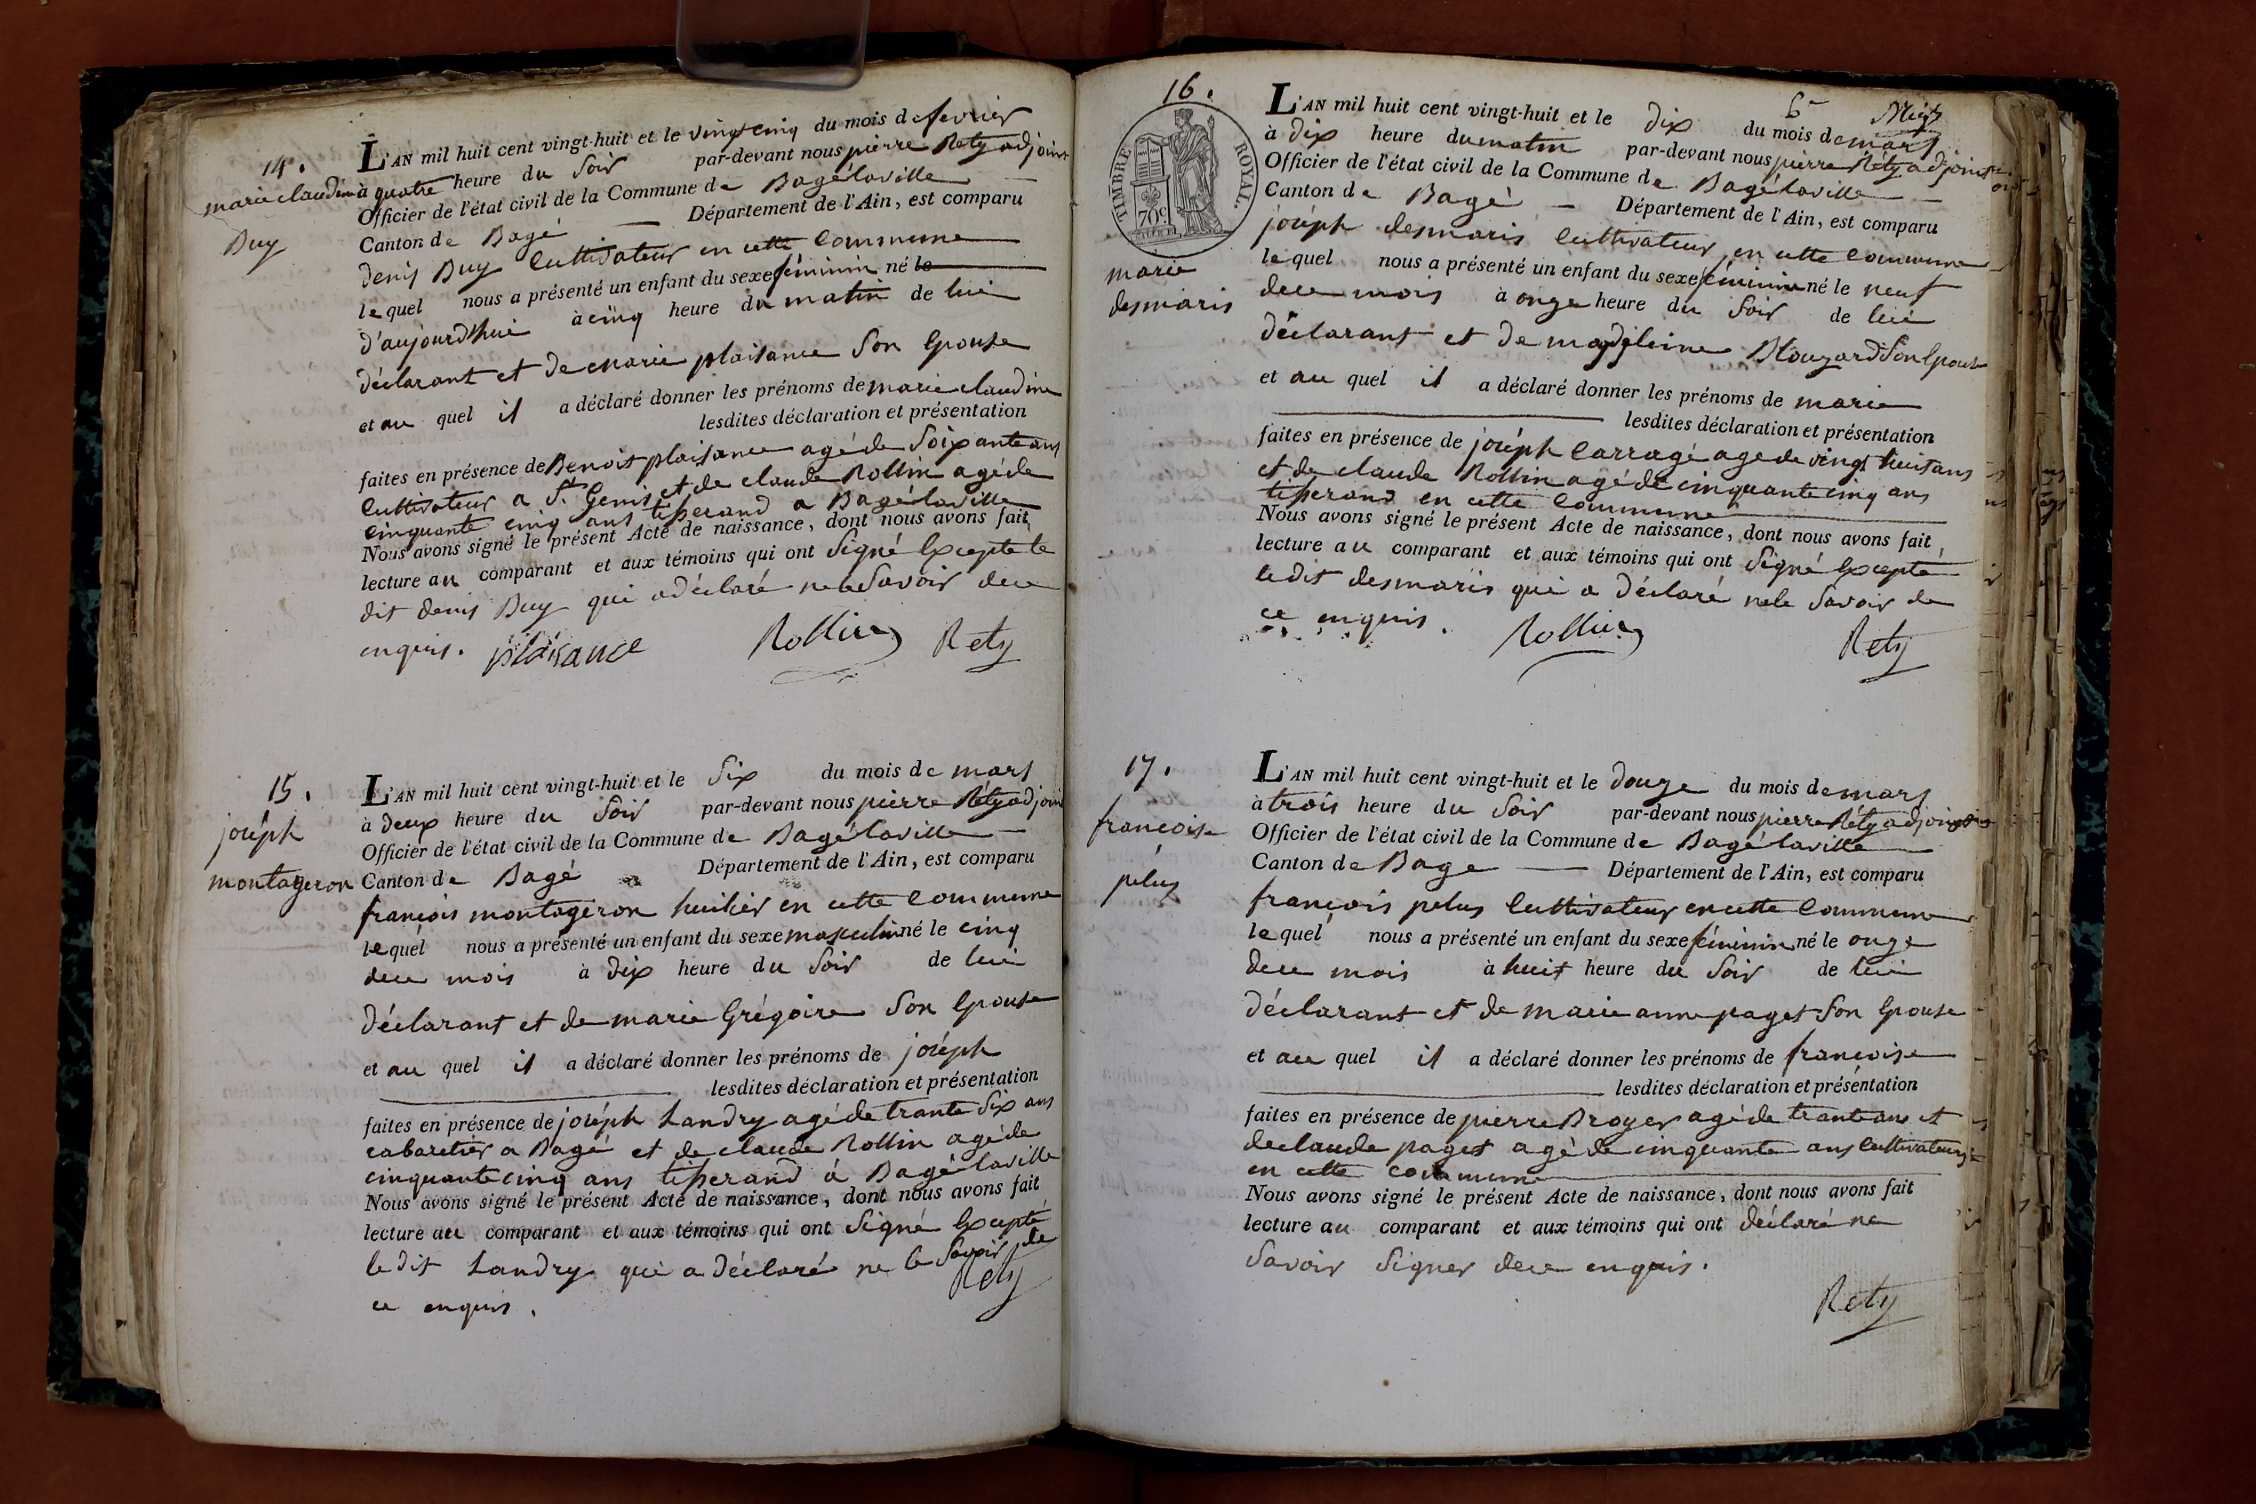 14.
marie claudine
Buy
L'AN mil huit cent vingt-huit et le vingt cinq du mois de fevrier
à quatre heure du soir par-devant nous pierre Rety adjoint
Officier de l'état civil de la Commune de Bagélaville
Canton de Bagé — Département de l'Ain, est comparu
denis Buy cultivateur en cette commune
lequel nous a présenté un enfant du sexe féminin né le
d'aujourd'hui à cinq heure du matin de lui
déclarant et de marie plaisance son epouse
et au quel il a déclaré donner les prénoms de marie claudine
lesdites déclaration et présentation
faites en présence de Benoit plaisance agé de soixante ans
cultivateur a St. Genis et de claude Rollin agé de
cinquante cinq ans tisserand a Bagélaville
Nous avons signé le présent Acte de naissance, dont nous avons fait
lecture au comparant et aux témoins qui ont signé excepté le
dit denis Buy qui a déclaré ne le savoir de ce
enquis. plaisance Rollin Rety
15.
joséph
montageron
L'AN mil huit cent vingt-huit et le six du mois de mars
à deux heure du soir par-devant nous pierre Réty adjoint
Officier de l'état civil de la Commune de Bagélaville —
Canton de Bagé Département de l'Ain, est comparu
françois montageron huilier en cette commune
lequel nous a présenté un enfant du sexe masculin né le cinq
de ce mois à dix heure du soir de lui
déclarant et de marie Grégoire son epouse
et au quel il a déclaré donner les prénoms de joséph
lesdites déclaration et présentation
faites en présence de joséph Landry agé de trante six ans
cabaretiér a Bagé et de claude Rollin agé de
cinquante cinq ans tisserand à Bagélaville
Nous avons signé le présent Acte de naissance, dont nous avons fait
lecture au comparant et aux témoins qui ont signé excepté
le dit Landry qui a déclaré ne le savoir de
ce enquis. Rety
16.
TIMBRE ROYAL.
70c.
marie
desmaris
L'AN mil huit cent vingt-huit et le dix du mois de mars
à dix heure du matin par-devant nous pierre Réty adjoint
Officier de l'état civil de la Commune de Bagélaville —
Canton de Bagé — Département de l'Ain, est comparu
joséph desmaris cultivateur en cette commune
lequel nous a présenté un enfant du sexe féminin né le neuf
de ce mois à onze heure du soir de lui
déclarant et de madeleine Blouzard son epouse
et au quel il a déclaré donner les prénoms de marie
lesdites déclaration et présentation
faites en présence de joséph Carragé agé de vingt huit ans
et de claude Rollin agé de cinquante cinq ans
tisserand en cette commune
Nous avons signé le présent Acte de naissance, dont nous avons fait
lecture au comparant et aux témoins qui ont signé excepté
le dit desmaris qui a déclaré ne le savoir de
ce enquis. Rollin Rety
17.
françoise
pelus
L'AN mil huit cent vingt-huit et le douze du mois de mars
à trois heure du soir par-devant nous pierre Réty adjoint
Officier de l'état civil de la Commune de Bagélaville
Canton de Bage — Département de l'Ain, est comparu
françois pelus cultivateur en cette commune
lequel nous a présenté un enfant du sexe féminin né le onze
de ce mois à huit heure du soir de lui
déclarant et de marie anne paget son epouse
et au quel il a déclaré donner les prénoms de françoise
lesdites déclaration et présentation
faites en présence de pierre Broyer agé de trante ans et
de claude paget agé de cinquante ans cultivateurs
en cette commune
Nous avons signé le présent Acte de naissance, dont nous avons fait
lecture au comparant et aux témoins qui ont déclaré ne
savoir signer de ce enquis.
Rety